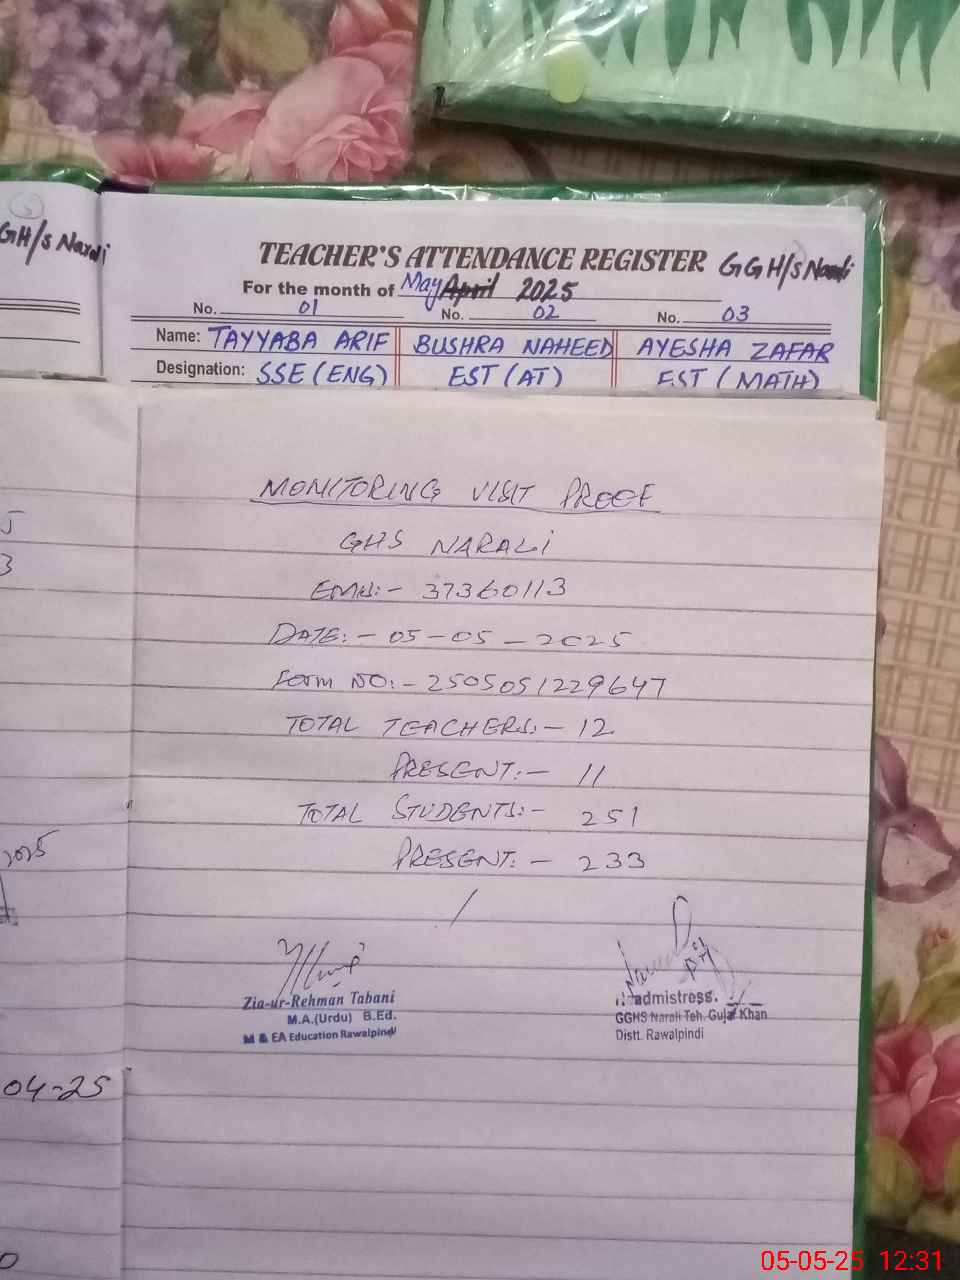 GH/S Narali
TEACHER'S ATTENDANCE REGISTER GGH/S Narali
For the month of May April 2025
No. 01 No. 02 No. 03
Name: TAYYABA ARIF BUSHRA NAHEED AYESHA ZAFAR
Designation: SSE (ENG) EST (AT) EST (MATH)
MONITORING VISIT PROOF
GHS NARALI
EMIS:- 37360113
DATE:- 05-05-2025
Form NO:- 2505051229647
TOTAL TEACHERS:- 12
PRESENT:- 11
TOTAL STUDENTS:- 251
PRESENT:- 233
Zia-ur-Rehman Tabani
M.A.(Urdu) B.Ed.
M & EA Education Rawalpindi
Headmistress.
GGHS Narali Teh. Gujar Khan
Distt. Rawalpindi
5
3
2025
04-25
05-05-25 12:31